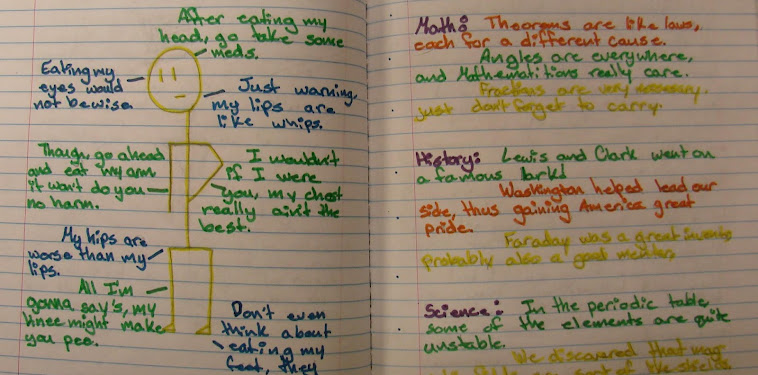 After eating my
head, go take some
meds.
Eating my
eyes would
not be wise.
Just warning,
my lips are
like whips.
Though, go ahead
and eat my arm
it won't do you
no harm.
I wouldn't
if I were
you, my chest
really ain't the
best.
My hips are
worse than my
lips.
All I'm
gonna say's, my
knee might make
you pee.
Don't even
think about
eating my
feet, they
Math: Theorems are like laws,
each for a different cause.
Angles are everywhere,
and Mathematitions really care.
Fractions are very necessary,
just don't forget to carry.
History: Lewis and Clark went on
a famous lark!
Washington helped lead our
side, thus gaining America great
pride.
Faraday was a great
probably also a good
Science: In the periodic table
some of the elements are quite
unstable.
We discovered that